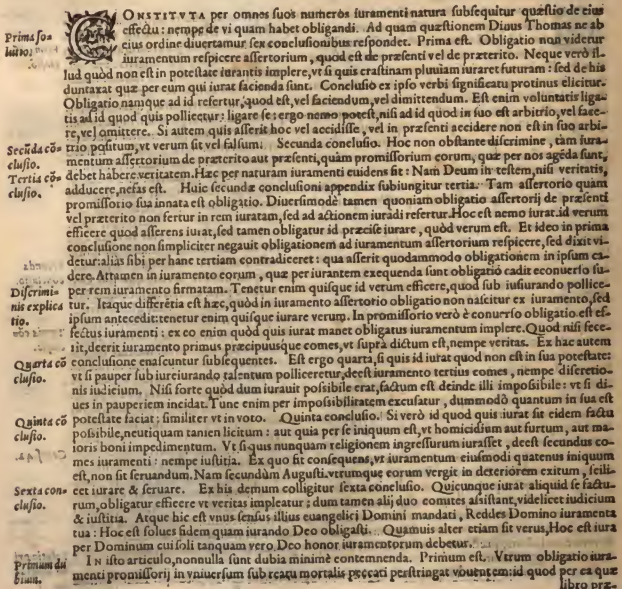 CONSTITVTA per omnes suos numeros iuramenti natura subsequitur quæstio de eius
effectu: nempe de vi quam habet obligandi. Ad quam quæstionem Diuus Thomas ne ab
eius ordine diuertamur sex conclusionibus respondet. Prima est. Obligatio non videtur
iuramentum respicere assertorium, quod est de præsenti vel de præterito. Neque verò il-
lud quòd non est in potestate iurantis implere, vt si quis crastinam pluuiam iuraret futuram: sed de his
duntaxat quæ per eum qui iurat facienda sunt. Conclusio ex ipso verbi significatu protinus elicitur.
Obligatio namque ad id refertur, quod est, vel faciendum, vel dimittendum. Est enim voluntatis liga-
tis ad id quod quis pollicetur: ligare se: ergo nemo potest, nisi ad id quod in suo est arbitrio, vel face-
re, vel omittere. Si autem quis asserit hoc vel accidisse, vel in præsenti accidere non est in suo arbi-
trio positum, vt verum sit vel falsum. Secunda conclusio. Hoc non obstante discrimine, tàm iura-
mentum assertorium de præterito aut præsenti, quàm promissorium eorum, quæ per nos agēda sunt,
debet habere veritatem. Hæc per naturam iuramenti euidens sit: Nam Deum in testem, nisi veritatis,
adducere, nefas est. Huic secundæ conclusioni appendix subiungitur tertia. Tam assertorio quàm
promissorio sua innata est obligatio. Diuersimodè tamen quoniam obligatio assertorij de præsenti
vel præterito non fertur in rem iuratam, sed ad actionem iurādi refertur. Hoc est nemo iurat id verum
efficere quod asserens iurat, sed tamen obligatur id præcisè iurare, quòd verum est. Et ideo in prima
conclusione non simpliciter negauit obligationem ad iuramentum assertorium respicere, sed dixit vi-
detur: aliàs sibi per hanc tertiam contradiceret: qua asserit quodammodo obligationem in ipsum ca-
dere. Attamen in iuramento eorum, quæ per iurantem exequenda sunt obligatio cadit econuerso su-
per rem iuramento firmatam. Tenetur enim quisque id verum efficere, quod sub iusiurando pollice-
tur. Itaque differētia est hæc, quòd in iuramento assertorio obligatio non nascitur ex iuramento, sed
ipsum antecedit: tenetur enim quisque iurare verum. In promissorio verò è conuerso obligatio est ef-
fectus iuramenti: ex eo enim quòd quis iurat manet obligatus iuramentum implere. Quod nisi fece-
rit, deerit iuramento primus præcipuusque comes, vt supra dictum est, nempe veritas. Ex hac autem
conclusione enascuntur subsequentes. Est ergo quarta, si quis id iurat quod non est in sua potestate:
vt si pauper sub iureiurando talentum polliceretur, deest iuramento tertius comes, nempe discretio-
nis iudicium. Nisi forte quòd dum iurauit possibile erat, factum est deinde illi impossibile: vt si di-
ues in pauperiem incidat. Tunc enim per impossibilitatem excusatur, dummodò quantum in sua est
potestate faciat: similiter vt in voto. Quinta conclusio. Si verò id quod quis iurat sit eidem factu
possibile, neutiquam tamen licitum: aut quia per se iniquum est, vt homicidium aut furtum, aut ma-
ioris boni impedimentum. Vt si quis nunquam religionem ingressurum iurasset, deest secundus co-
mes iuramenti: nempe iustitia. Ex quo fit consequens, vt iuramentum eiusmodi quatenus iniquum
est, non sit seruandum. Nam secundùm Augusti. vtrumque eorum vergit in deteriorem exitum, scili-
cet iurare & seruare. Ex his demum colligitur sexta conclusio. Quicunque iurat aliquid se factu-
rum, obligatur efficere vt veritas impleatur: dum tamen alij duo comites assistant, videlicet iudicium
& iustitia. Atque hic est vnus sensus illius euangelici Domini mandati, Reddes Domino iuramenta
tua: Hoc est solues fidem quam iurando Deo obligasti. Quamuis alter etiam sit verus, Hoc est iura
per Dominum cui soli tanquam vero Deo honor iuramentorum debetur.
IN isto articulo, nonnulla sunt dubia minimè contemnenda. Primum est. Vtrum obligatio iura-
menti promissorij in vniuersum sub reatu mortalis peccati perstringat vouentem: id quod per ea quæ
libro præ-
Prima so-
Secūda cō-
clusio.
Tertia cō-
clusio.
Discrimi-
nis explica
tio.
Quarta cō
clusio.
Quinta cō
clusio.
Sexta con-
clusio.
Primum du
bium.